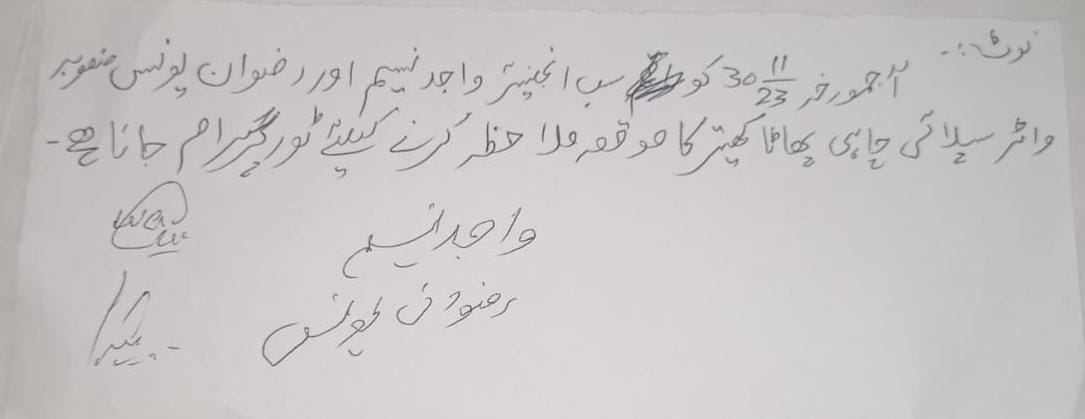 نوٹ:۔
آج مورخہ 30 11/23 کو سب انجنیئر واجد نسیم اور رضوان یونس منصوبہ
واٹر سپلائی چاہی پھاٹا کھیتر کا موقعہ ملاحظہ کرنے کیلئے ٹور پروگرام جانا ہے۔
واجد نسیم
رضوان یونس